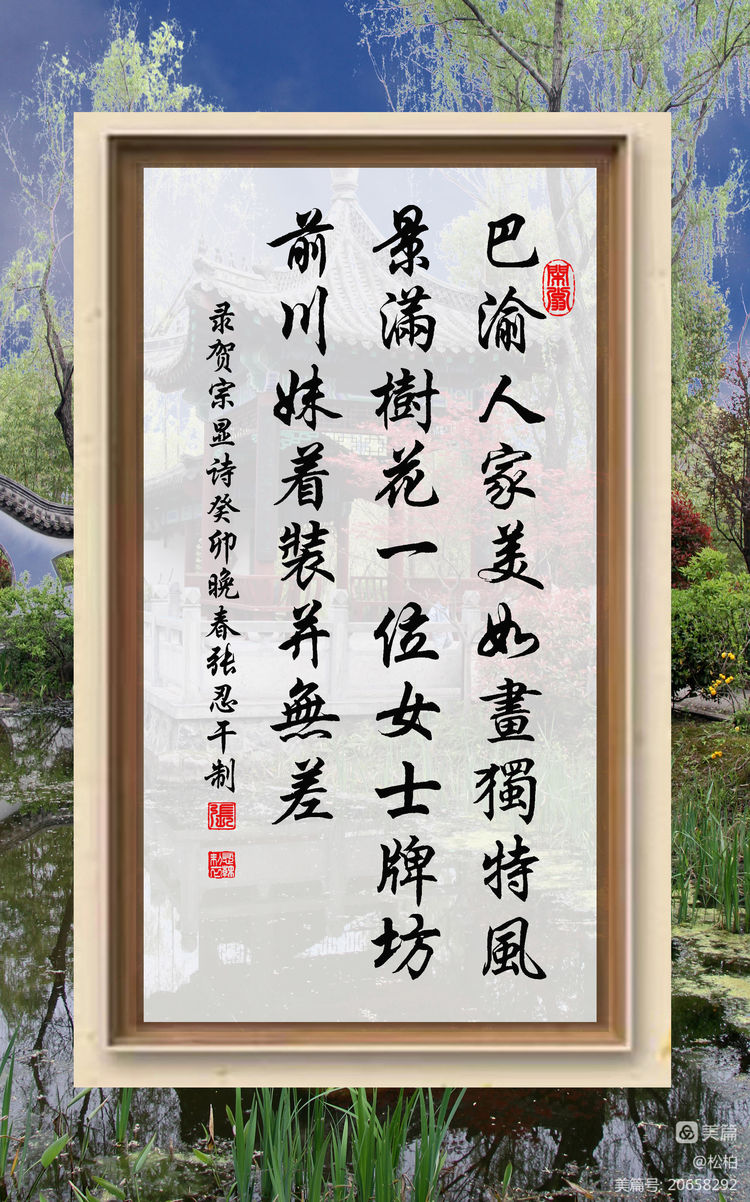 巴渝人家美如畫獨特風
景滿樹花一位女士牌坊
前川妹着裝并無差
录贺宗显诗癸卯晚春张忍干制
張
美篇
@松柏
美篇号: 20658292